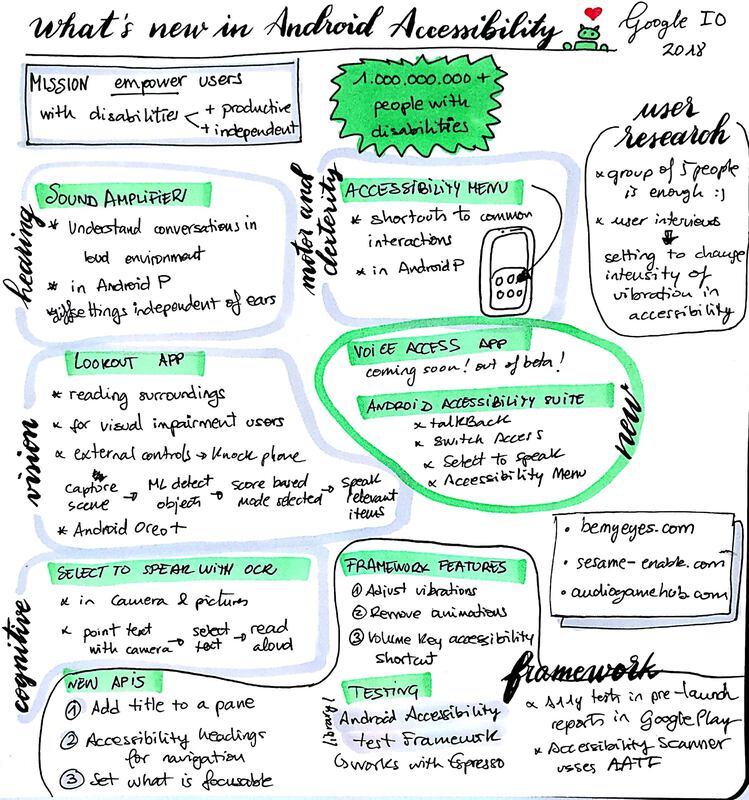 What's new in Android Accessibility
Google IO
2018
MISSION empower users
with disabilities < + productive
+ independent
1.000.000.000 +
people with
disabilities
user
research
* group of 5 people
is enough :)
* user interviews
setting to change
intensity of
vibration in
accessibility
hearing
SOUND AMPLIFIER
* Understand conversations in
loud environment
* in Android P
* diff settings independent of ears
motor and
dexterity
ACCESSIBILITY MENU
* shortcuts to common
interactions
* in Android P
vision
LOOKOUT APP
* reading surroundings
* for visual impairment users
* external controls → Knock phone
capture
scene
→ ML detect
objects
→ Score based
mode selected
→ speak
relevant
items
* Android Oreo +
VOICE ACCESS APP
coming soon! out of beta!
ANDROID ACCESSIBILITY SUITE
* talkBack
* Switch Access
* Select to speak
* Accessibility Menu
new
• bemyeyes.com
• sesame-enable.com
• audiogamehub.com
cognitive
SELECT TO SPEAK WITH OCR
* in Camera & pictures
* point text
with camera
→ select
text
→ read
aloud
FRAMEWORK FEATURES
① Adjust vibrations
② Remove animations
③ Volume Key accessibility
shortcut
framework
NEW APIS
① Add title to a pane
② Accessibility headings
for navigation
③ Set what is focusable
TESTING
library!
Android Accessibility
test Framework
↳ works with Espresso
* A11y tests in pre-launch
reports in Google Play
* Accessibility Scanner
usses AATF